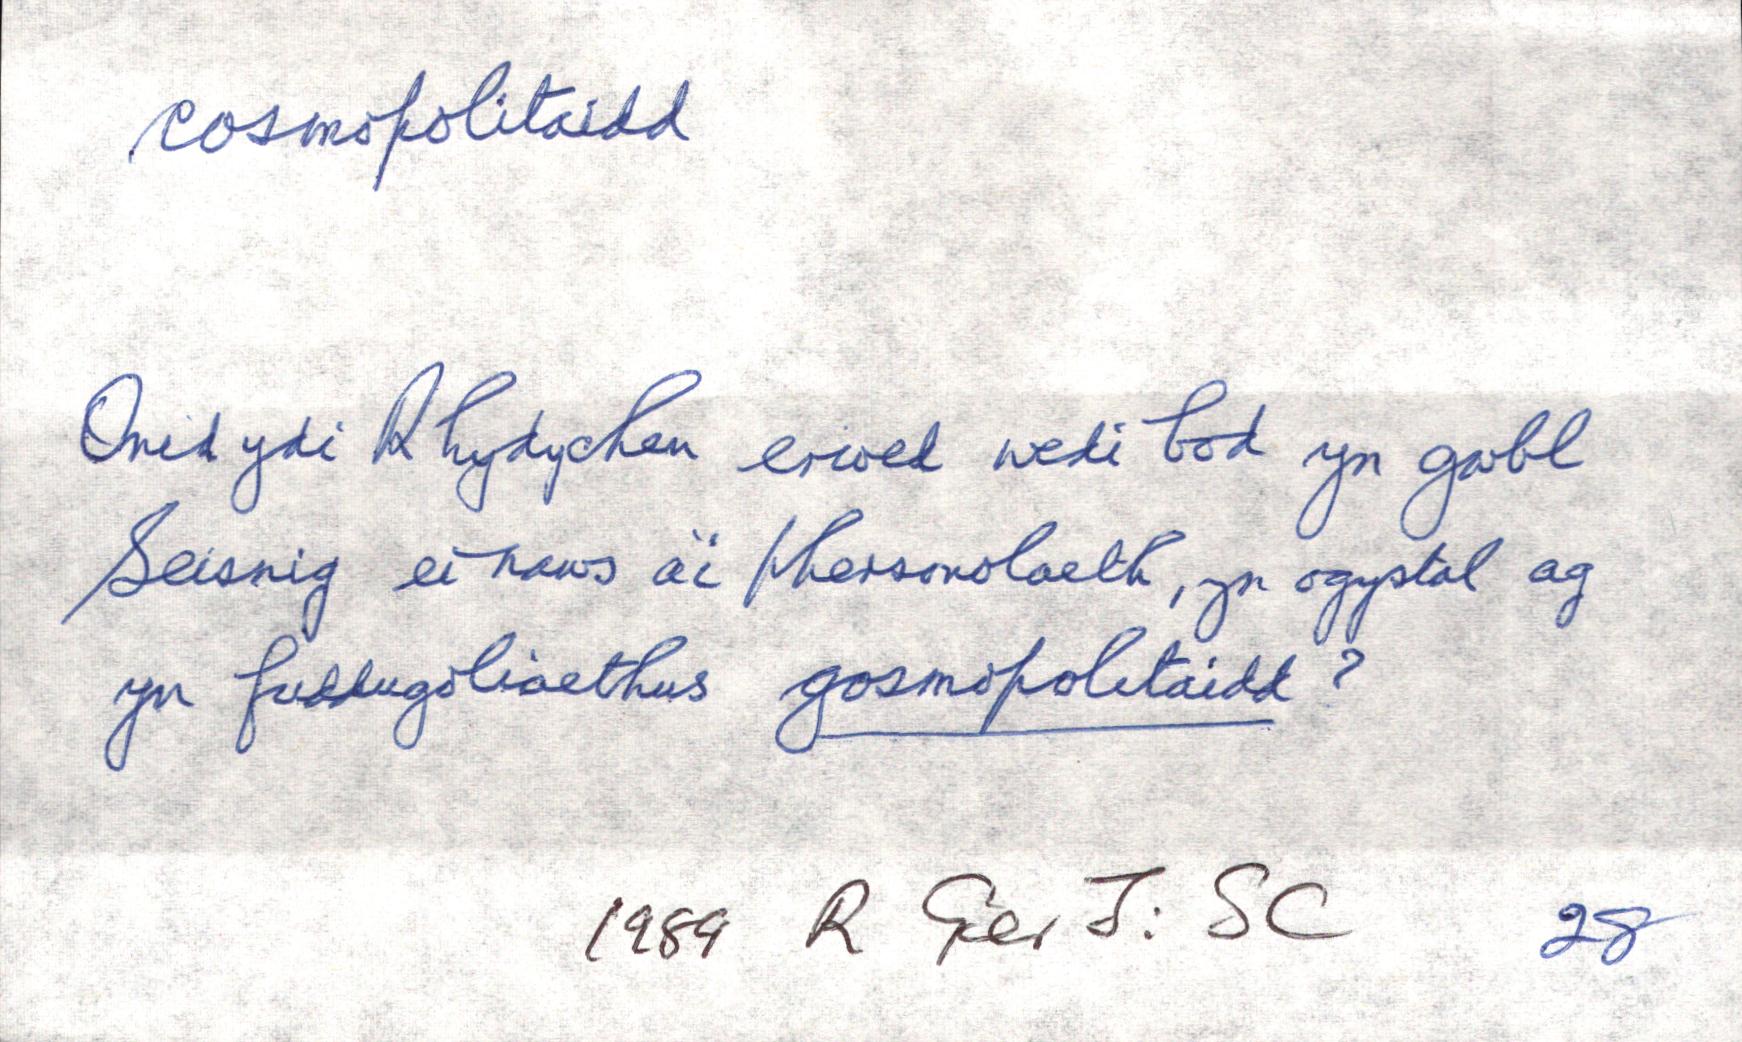 cosmopolitaidd
Onid ydi Rhydychen erioed wedi bod yn gwbl
Seisnig ei naws a'i phersonolaeth, yn ogystal ag
yn fuddugoliaethus gosmopolitaidd?
1989 R Ger J: SC 28